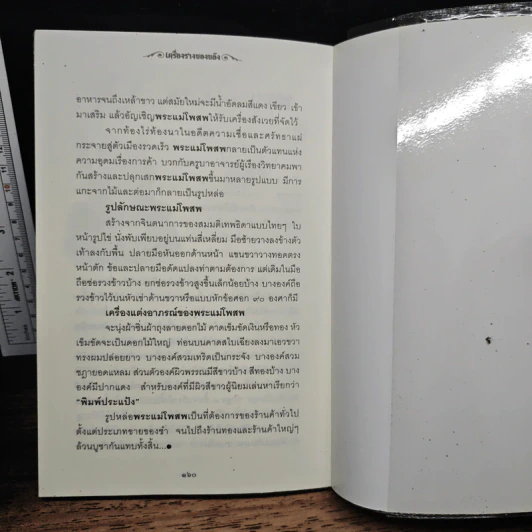 เครื่องรางของขลัง
อาหารจนถึงเหล้าขาว แต่สมัยใหม่จะมีน้ำอัดลมสีแดง เขียว เข้า
มาเสริม แล้วอัญเชิญพระแม่โพสพให้รับเครื่องสังเวยที่จัดไว้
จากท้องไร่ท้องนาในอดีตความเชื่อและศรัทธาแผ่
กระจายสู่ตัวเมืองรวดเร็ว พระแม่โพสพกลายเป็นตัวแทนแห่ง
ความอุดมเรื่องการค้า บวกกับครูบาอาจารย์ผู้เรืองวิทยาคมพา
กันสร้างและปลุกเสกพระแม่โพสพขึ้นมาหลายรูปแบบ มีการ
แกะจากไม้และต่อมาก็กลายเป็นรูปหล่อ
รูปลักษณะพระแม่โพสพ
สร้างจากจินตนาการของสมมติเทพธิดาแบบไทยๆ ใบ
หน้ารูปไข่ นั่งพับเพียบอยู่บนแท่นสี่เหลี่ยม มือซ้ายวางลงข้างตัว
เท้าลงกับพื้น ปลายมือหันออกด้านหน้า แขนขวาวางทอดตรง
หน้าตัก ข้อและปลายมือดัดแปลงท่าตามต้องการ แต่เดิมในมือ
ถือช่อรวงข้าวบ้าง ยกช่อรวงข้าวสูงขึ้นเล็กน้อยบ้าง บางองค์ถือ
รวงข้าวไว้บนหัวเข่าด้านขวาหรือแบบหักข้อศอก ๙๐ องศาก็มี
เครื่องแต่งอาภรณ์ของพระแม่โพสพ
จะนุ่งผ้าซิ่นผ้าถุงลายดอกไม้ คาดเข็มขัดเงินหรือทอง หัว
เข็มขัดจะเป็นดอกไม้ใหญ่ ท่อนบนคาดสไบเฉียงลงมาเอวขวา
ทรงผมปล่อยยาว บางองค์สวมเทริดเป็นกระจัง บางองค์สวม
ชฎายอดแหลม ส่วนตัวองค์ผิวพรรณมีสีขาวบ้าง สีทองบ้าง บาง
องค์มีปากแดง สำหรับองค์ที่มีผิวสีขาวผู้นิยมเล่นหาเรียกว่า
"พิมพ์ประแป้ง"
รูปหล่อพระแม่โพสพเป็นที่ต้องการของร้านค้าทั่วไป
ตั้งแต่ประเภทขายของชำ จนไปถึงร้านทองและร้านค้าใหญ่ๆ
ล้วนบูชากันแทบทั้งสิ้น...●
๑๖๐